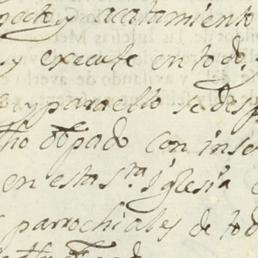 y acatamiento
y execute en todo,
y para ello se desp
dho obpado con inse
en esta s.ta Iglesia
parrochiales de tod